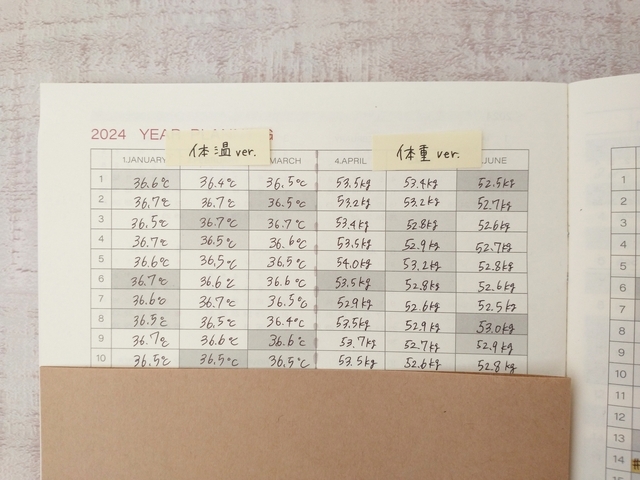 2024 YEAR PLANNING
体温 ver. 体重 ver.
1.JANUARY MARCH 4.APRIL JUNE
1 36.6℃ 36.4℃ 36.5℃ 53.5kg 53.4kg 52.5kg
2 36.7℃ 36.7℃ 36.5℃ 53.2kg 53.2kg 52.7kg
3 36.5℃ 36.7℃ 36.7℃ 53.4kg 52.8kg 52.6kg
4 36.7℃ 36.5℃ 36.6℃ 53.5kg 52.9kg 52.7kg
5 36.6℃ 36.5℃ 36.5℃ 54.0kg 53.2kg 52.8kg
6 36.7℃ 36.6℃ 36.6℃ 53.5kg 52.8kg 52.6kg
7 36.6℃ 36.7℃ 36.5℃ 52.9kg 52.6kg 52.5kg
8 36.5℃ 36.5℃ 36.4℃ 53.5kg 52.9kg 53.0kg
9 36.7℃ 36.6℃ 36.6℃ 53.7kg 52.7kg 52.9kg
10 36.5℃ 36.5℃ 36.5℃ 53.5kg 52.6kg 52.8kg
1
2
3
4
5
6
7
8
9
10
11
12
13
14